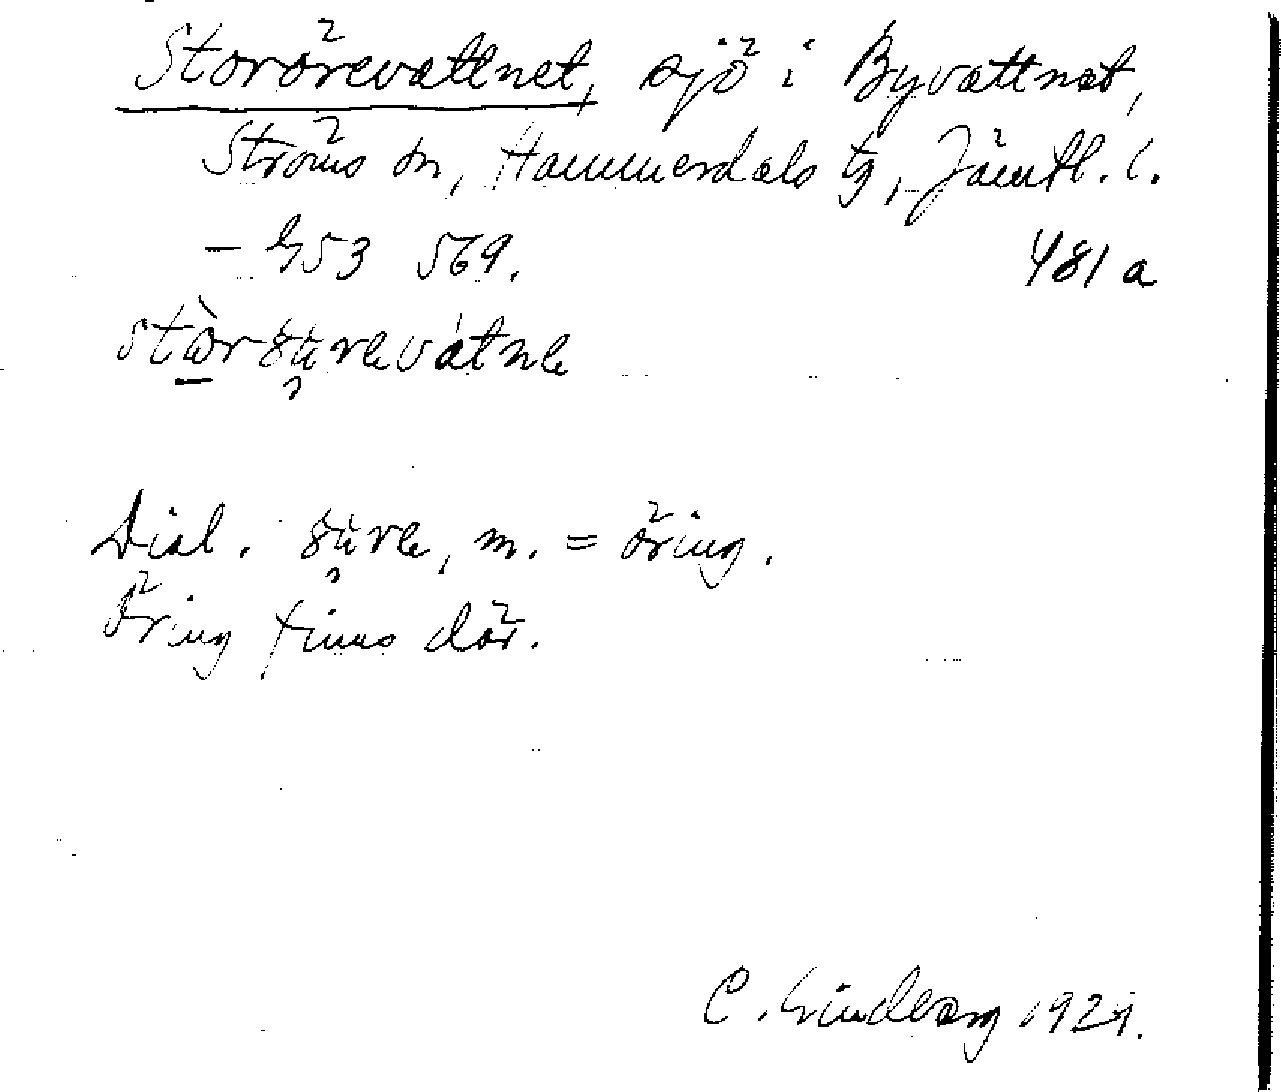 Storörevattnet, sjö i Byvattnet,
Ströms sn, Hammerdals tg, Jämtl. l.
– G53 569. 481 a
Dial. m. = öring.
Öring finns där.
C. Lindberg 1929.